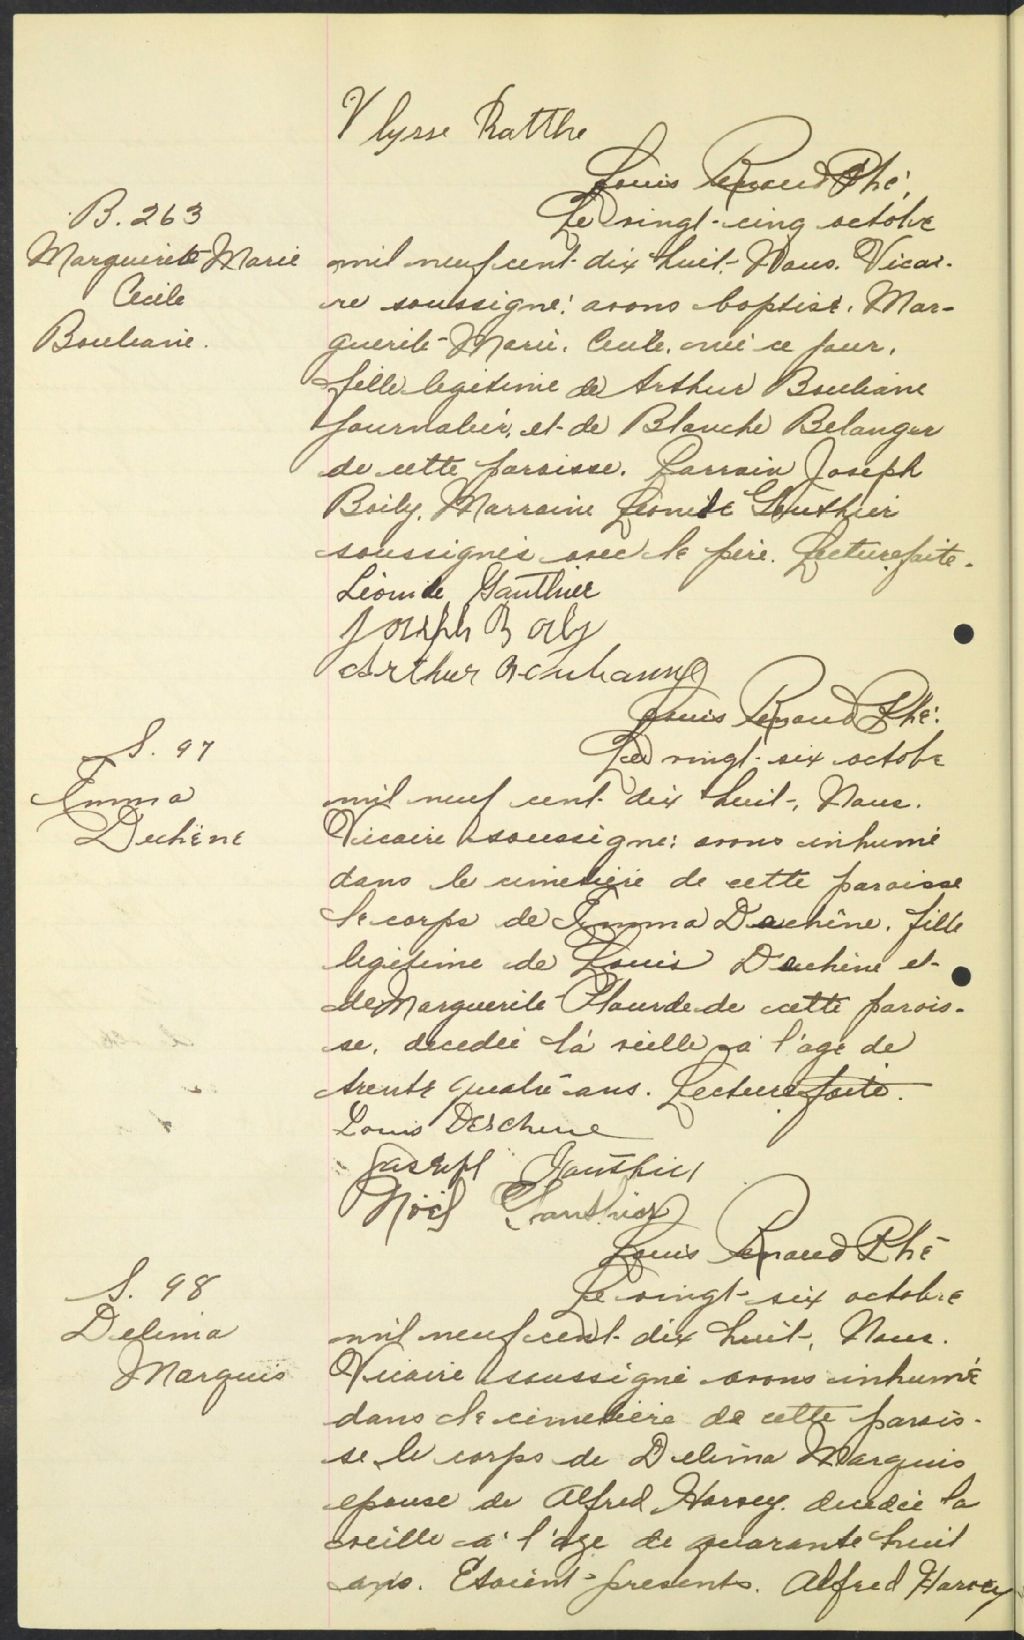 Ulysse Ratthe
Louis Renaud Ptre.
B. 263
Marguerite-Marie
Cecile
Bouliane.
Le vingt-cinq octobre
mil neuf cent dix huit, Nous. Vicai-
re soussigné: avons baptisé, Mar-
guerite-Marie. Cecile, née ce jour,
fille legitime de Arthur Bouliane
journalier, et de Blanche Belanger
de cette paroisse. Parrain Joseph
Boily. Marraine Leonile Gauthier
soussignés avec le père. Lecture faite.
Léonile Gauthier
Joseph Boily
Arthur Bouliane
Louis Renaud Ptre.
S. 97
Emma
Duchène
Le vingt-six octobre
mil neuf cent dix huit, Nous.
Vicaire soussigné: avons inhumé
dans le cimetière de cette paroisse
le corps de Emma Duchêne. fille
legitime de Louis Duchène et
de Marguerite Plourde de cette parois-
se. decedée la veille à l'age de
trente quatre ans. Lecture faite.
Louis Deschene
Joseph Gauthier
Noël Gauthier
Louis Renaud Ptre
S. 98
Delima
Marquis
Le vingt-six octobre
mil neuf cent dix huit, Nous.
Vicaire soussigné avons inhumé
dans le cimetière de cette parois-
se le corps de Delima Marquis
epouse de Alfred Harvey. decedée la
veille à l'age de quarante huit
ans. Etaient presents. Alfred Harvey